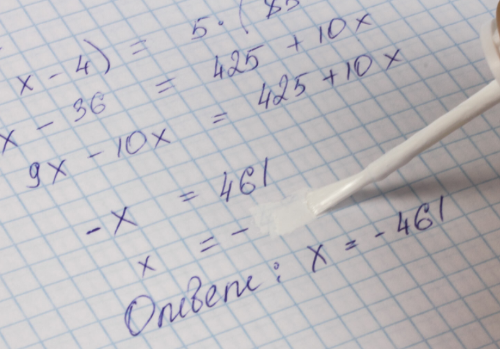 x - 4) = 5 · (85
x - 36 = 425 + 10x
9x - 10x = 425 + 10x
-x = 461
x = -
Ответ: x = -461